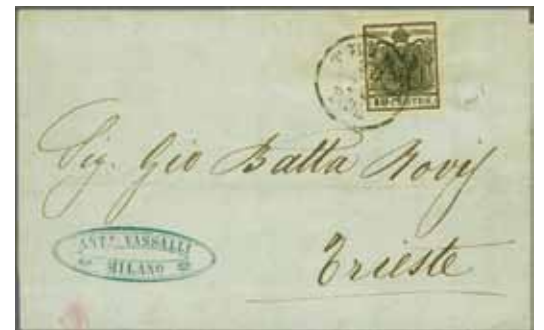 10 CENTES.
Sig. Gio Batta Rovis
Trieste
ANT. VASSALLI
MILANO